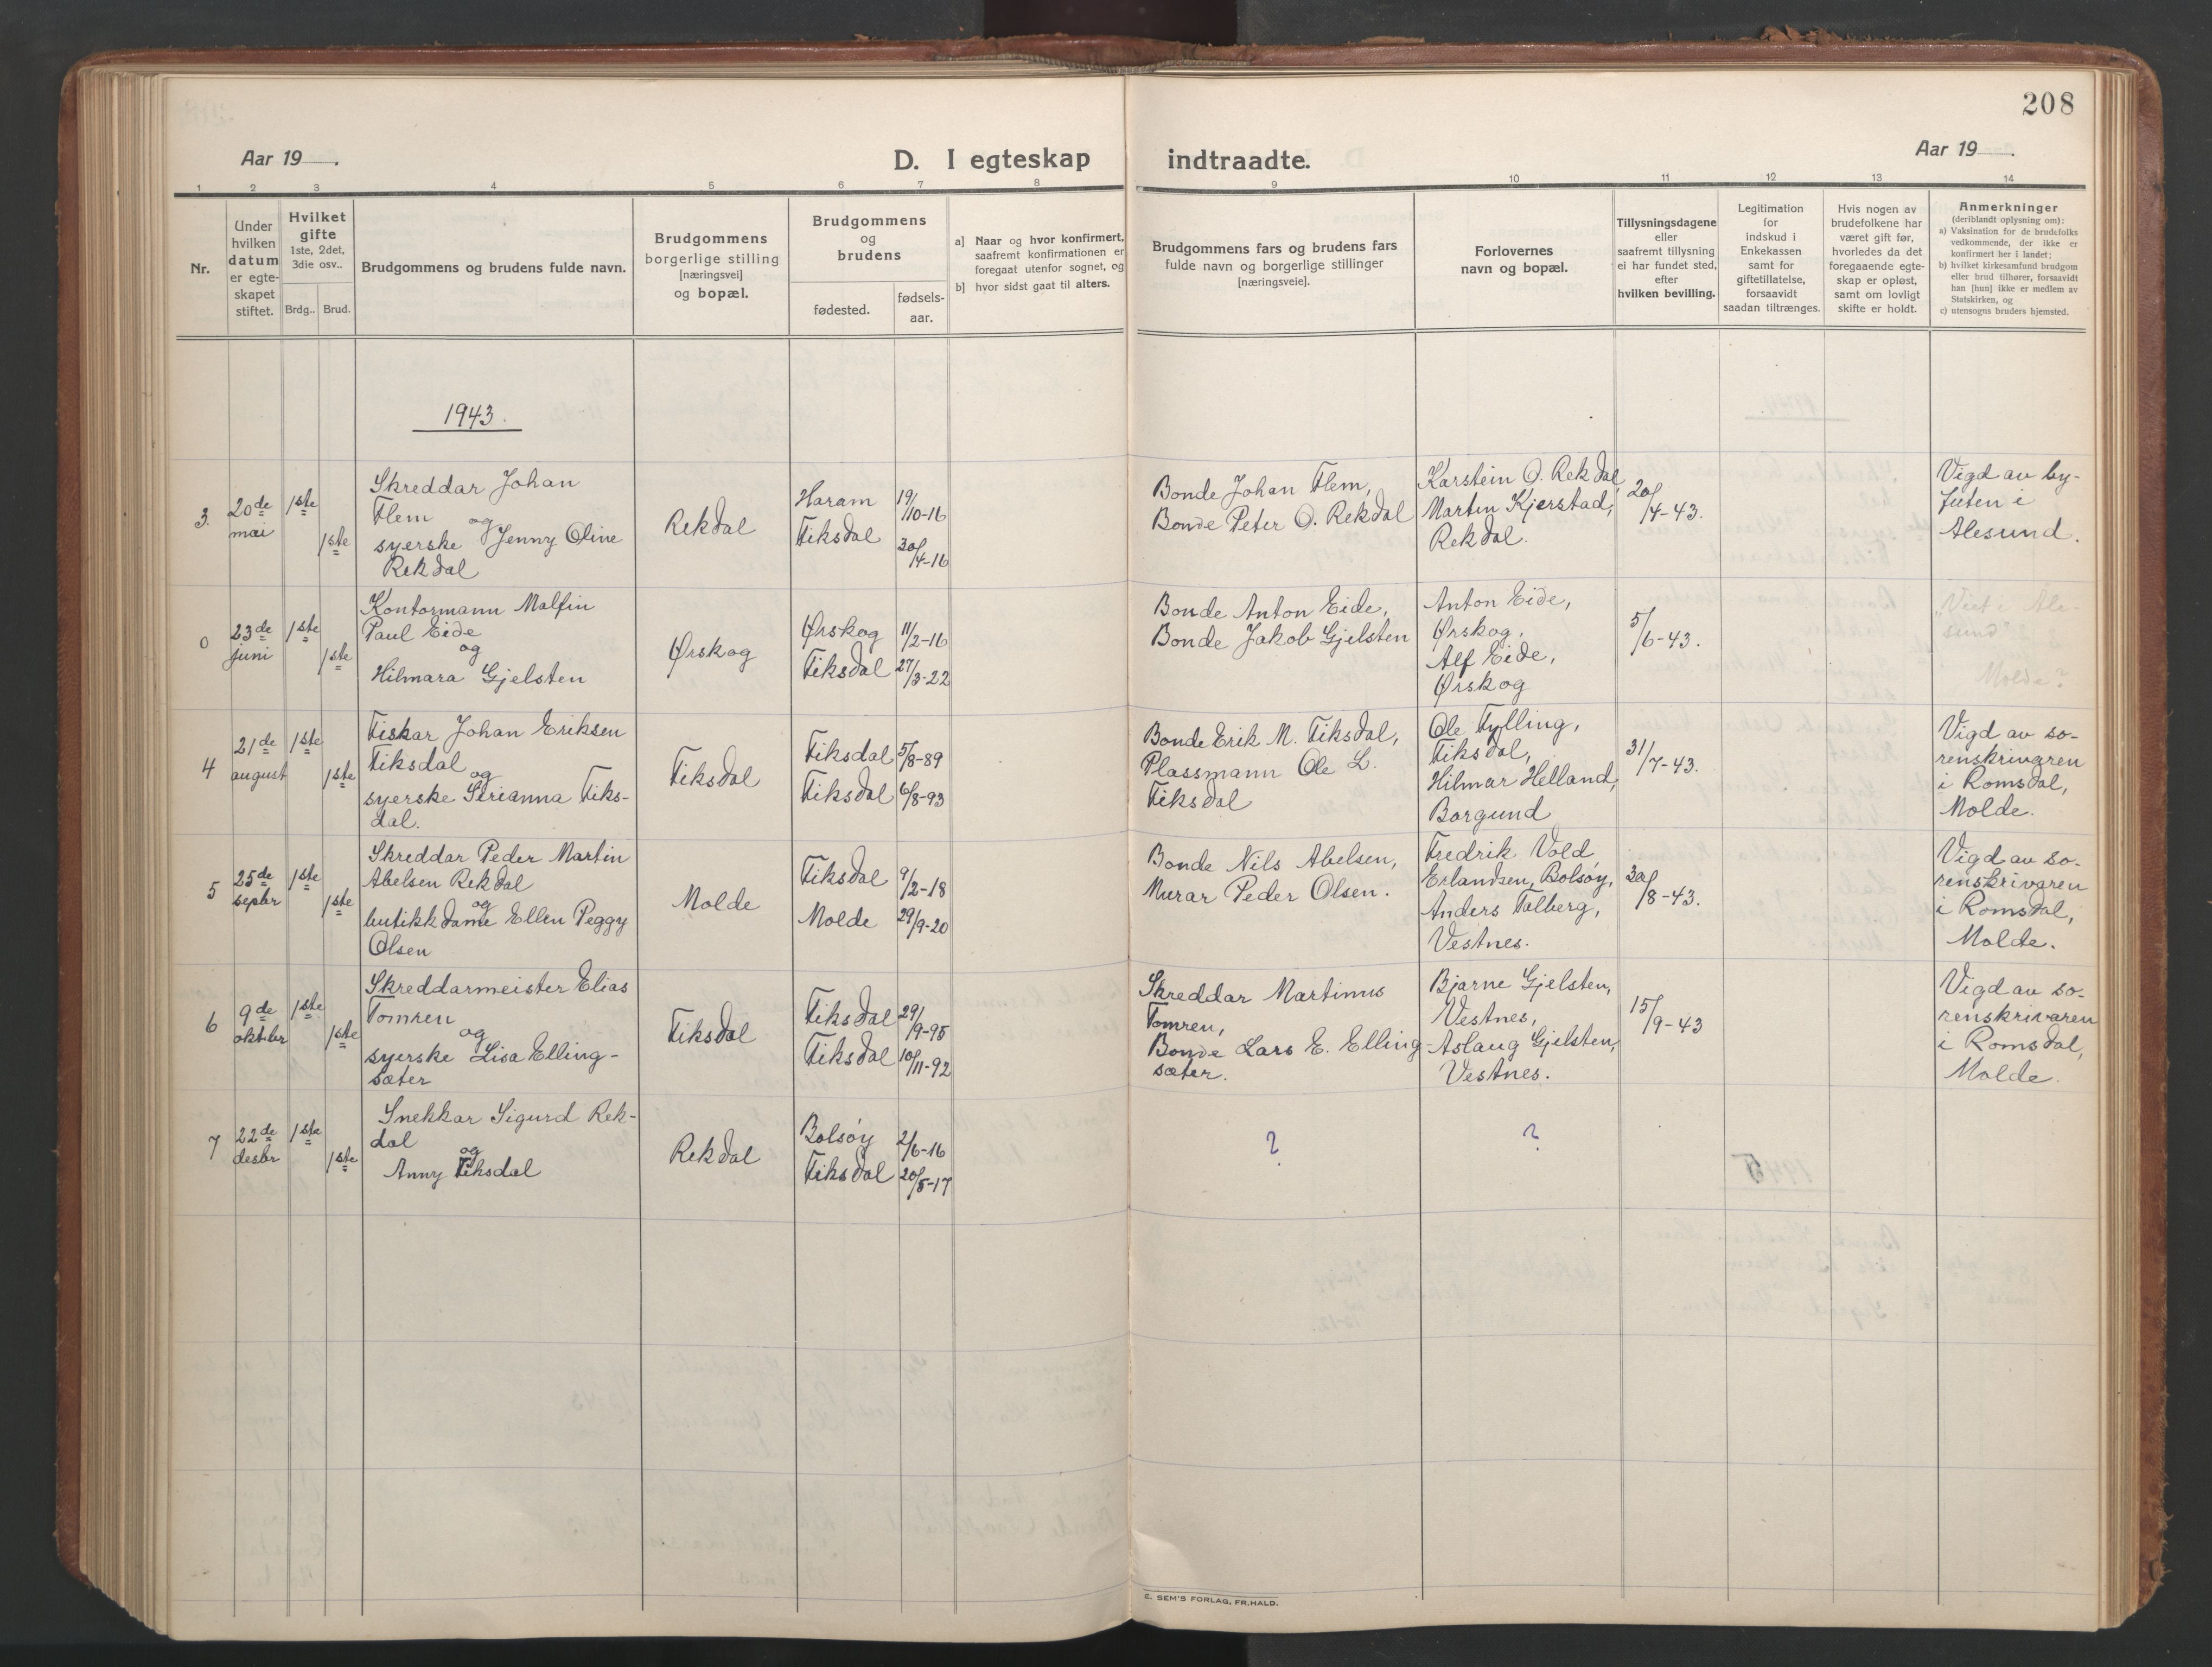 208
Aar 19 .
D. I egteskap
indtraadte.
Aar 19 .
1 2 3 4 5 6 7 8 9 10 11 12 13 14
Nr.
Under
hvilken
datum
er egte-
skapet
stiftet.
Hvilket
gifte
1ste, 2det,
3die osv..
Brdg.. Brud.
Brudgommens og brudens fulde navn.
Brudgommens
borgerlige stilling
[næringsvei]
og bopæl.
Brudgommens
og
brudens
fødested.
fødsels-
aar.
a] Naar og hvor konfirmert,
saafremt konfirmationen er
foregaat utenfor sognet, og
b] hvor sidst gaat til alters.
Brudgommens fars og brudens fars
fulde navn og borgerlige stillinger
[næringsveie].
Forlovernes
navn og bopæl.
Tillysningsdagene
eller
saafremt tillysning
ei har fundet sted,
efter
hvilken bevilling.
Legitimation
for
indskud i
Enkekassen
samt for
giftetillatelse,
forsaavidt
saadan tiltrænges.
Hvis nogen av
brudefolkene har
været gift før,
hvorledes da det
foregaaende egte-
skap er opløst,
samt om lovligt
skifte er holdt.
Anmerkninger
(deriblandt oplysning om):
a) Vaksination for de brudefolks
vedkommende, der ikke er
konfirmert her i landet;
b) hvilket kirkesamfund brudgom
eller brud tilhører, forsaavidt
han [hun] ikke er medlem av
Statskirken, og
c) utensogns bruders hjemsted.
1943.
3.
20de
mai
1ste
1ste
Skreddar Johan
Flem
og
syerske Jenny Oline
Rekdal
Rekdal
Haram
Fiksdal
19/10-16
30/4-16
Bonde Johan Flem,
Bonde Peter O. Rekdal
Karstein O. Rekdal,
Martin Kjerstad,
Rekdal.
20/4-43.
Vigd av by-
futen i
Ålesund.
0
23de
juni
1ste
1ste
Kontormann Malfin
Paul Eide
og
Hilmara Gjelsten
Ørskog
Ørskog
Fiksdal
11/2-16
27/3-22
Bonde Anton Eide,
Bonde Jakob Gjelsten
Anton Eide,
Ørskog,
Alf Eide,
Ørskog
5/6-43.
Viet i Åle-
sund?
Molde?
4
21de
august
1ste
1ste
Fiskar Johan Eriksen
Fiksdal
og
syerske Serianna Fiks-
dal.
Fiksdal
Fiksdal
Fiksdal
5/8-89
6/8-93
Bonde Erik M. Fiksdal,
Plassmann Ole L.
Fiksdal
Ole Fylling,
Fiksdal,
Hilmar Helland,
Borgund
31/7-43.
Vigd av so-
renskrivaren
i Romsdal,
Molde.
5
25de
septbr
1ste
1ste
Skreddar Peder Martin
Abelsen Rekdal
og
butikkdame Ellen Peggy
Olsen
Molde
Fiksdal
Molde
9/2-18
29/9-20
Bonde Nils Abelsen,
Murar Peder Olsen.
Fredrik Vold
Erlandsen, Bolsøy,
Anders Talberg,
Vestnes.
30/8-43.
Vigd av so-
renskrivaren
i Romsdal,
Molde.
6
9de
oktober
1ste
1ste
Skreddarmeister Elias
Tomren
og
syerske Lisa Elling-
sæter
Fiksdal
Fiksdal
Fiksdal
29/9-95
10/11-92
Skreddar Martinus
Tomren,
Bonde Lars E. Elling-
sæter.
Bjarne Gjelsten,
Vestnes,
Aslaug Gjelsten,
Vestnes.
15/9-43
Vigd av so-
renskrivaren
i Romsdal,
Molde.
7
22de
desbr
1ste
1ste
Snekkar Sigurd Rek-
dal
og
Anny Fiksdal
Rekdal
Bolsøy
Fiksdal
2/6-16
20/5-17
?
?
E. SEM'S FORLAG, FR.HALD.